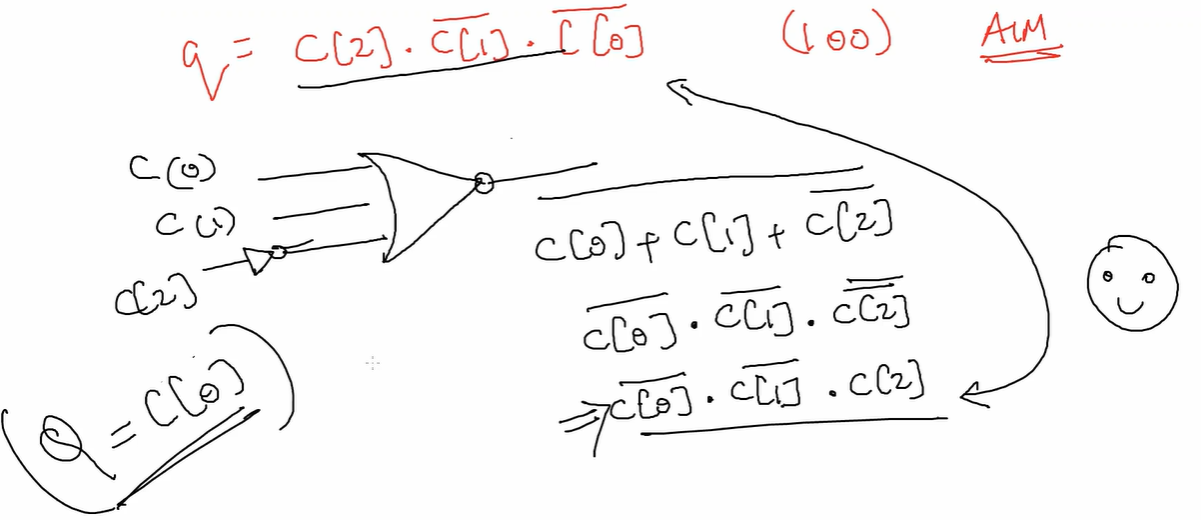 q = C[2] . C̅[̅1̅]̅ . C̅[̅0̅]̅ (100) AIM
C(0)
C(1)
C[2]
C̅[̅0̅]̅ ̅+̅ ̅C̅[̅1̅]̅ ̅+̅ ̅C̿[̿2̿]̿
C̅[̅0̅]̅ . C̅[̅1̅]̅ . C̿[̿2̿]̿
⇒ C̅[̅0̅]̅ . C̅[̅1̅]̅ . C[2]
Q = C[0]